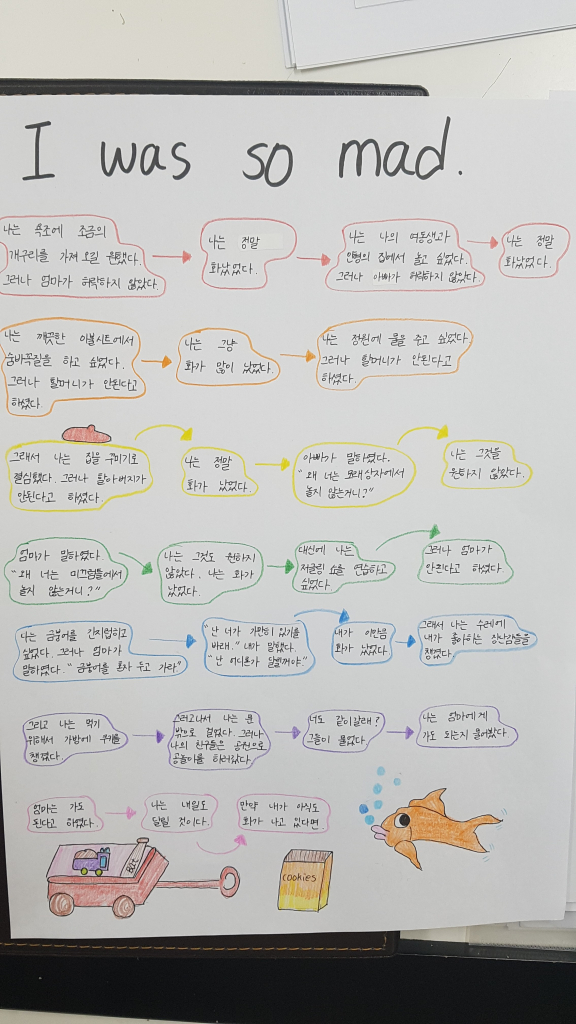 I was so mad.
나는 욕조에 조금의
개구리를 가져 오길 원했다.
그러나 엄마가 허락하지 않았다.
나는 정말
화났었다.
나는 나의 여동생과
인형의 집에서 놀고 싶었다.
그러나 아빠가 허락하지 않았다.
나는 정말
화났었다.
나는 깨끗한 이불시트에서
숨바꼭질을 하고 싶었다.
그러나 할머니가 안된다고
하셨다.
나는 그냥
화가 많이 났었다.
나는 정원에 물을 주고 싶었다.
그러나 할머니가 안된다고
하셨다.
그래서 나는 집을 꾸미기로
결심했다. 그러나 할아버지가
안된다고 하셨다.
나는 정말
화가 났었다.
아빠가 말하셨다.
"왜 너는 모래상자에서
놀지 않는거니?"
나는 그것을
원하지 않았다.
엄마가 말하였다.
"왜 너는 미끄럼틀에서
놀지 않는거니?"
나는 그것도 원하지
않았다. 나는 화가
났었다.
대신에 나는
저글링 쇼를 연습하고
싶었다.
그러나 엄마가
안된다고 하셨다.
나는 금붕어를 간지럽히고
싶었다. 그러나 엄마가
말하였다. "금붕어를 혼자 두고 가라"
"난 너가 가만히 있기를
바래." 내가 말했다.
"난 어디론가 달릴꺼야"
내가 이만큼
화가 났었다
그래서 나는 수레에
내가 좋아하는 장난감들을
챙겼다.
그리고 나는 먹기
위해서 가방에 쿠키를
챙겼다.
그러고나서 나는 문
밖으로 걸었다. 그러나
나의 친구들은 공원으로
공놀이를 하러갔다.
너도 같이갈래?
그들이 물었다.
나는 엄마에게
가도 되는지 물어봤다
엄마는 가도
된다고 하였다.
나는 내일도
달릴 것이다.
만약 내가 아직도
화가 나고 있다면.
cookies